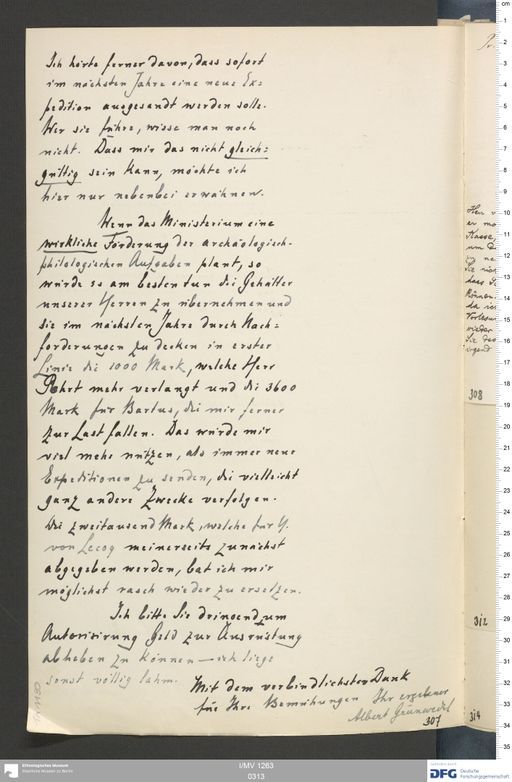 Ich hörte ferner davon, dass sofort
im nächsten Jahre eine neue Ex=
pedition ausgesandt werden solle.
Wer sie führe, wisse man noch
nicht. Dass mir das nicht gleich=
gültig sein kann, möchte ich
hier nur nebenbei erwähnen.
Wenn das Ministerium eine
wirkliche Förderung der archäologisch-
philologischen Aufgaben plant, so
würde es am besten tun die Gehälter
unserer Herren zu übernehmen und
sie im nächsten Jahre durch Nach=
forderungen zu decken in erster
Linie die 1000 Mark, welche Herr
Pohrt mehr verlangt und die 3600
Mark für Bartus, die mir ferner
zur Last fallen. Das würde mir
viel mehr nützen, als immer neue
Expeditionen zu senden, die vielleicht
ganz andere Zwecke verfolgen.
Die zweitausend Mark, welche für H.
von Lecoq meinerseits zunächst
abgegeben werden, bat ich mir
möglichst rasch wieder zu ersetzen.
Ich bitte Sie dringend zum
Autorisirung Geld zur Ausrüstung
abheben zu können — ich liege
sonst völlig lahm.
Mit dem verbindlichsten Dank
für Ihre Bemühungen Ihr ergebener
Albert Grünwedel
307
308
312
314
Ethnologisches Museum
Staatliche Museen zu Berlin
I/MV 1263
0313
DFG Deutsche
Forschungsgemeinschaft